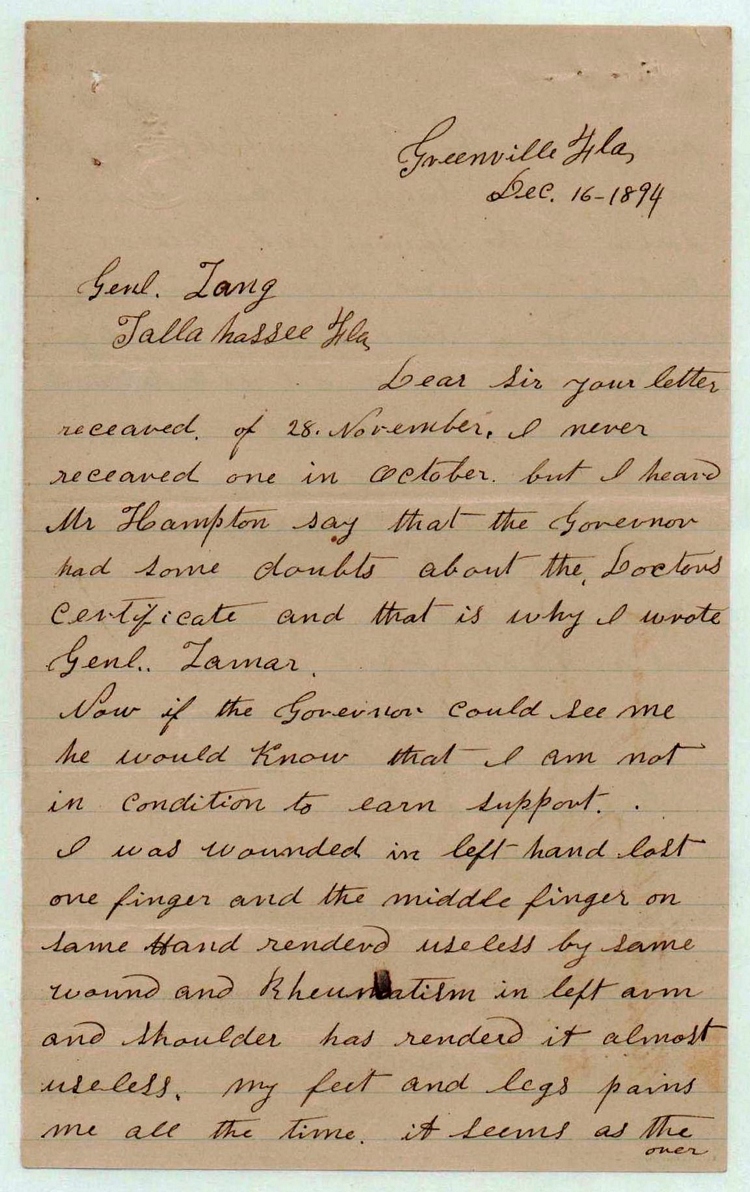 Greenville Fla,
Dec. 16-1894
Genl. Lang
Talla hassee Fla,
Dear Sir your letter
receaved. of 28. November. I never
receaved one in October. but I heard
Mr Hampton say that the Governor
had some doubts about the, Doctors
certificate and that is why I wrote
Genl. Lamar.
Now if the Governor could see me
he would Know that I am not
in condition to earn support.
I was wounded in left hand lost
one finger and the middle finger on
same Hand renderd useless by same
wound and Rheumatism in left arm
and shoulder has renderd it almost
useless. my feet and legs pains
me all the time. it seems as the
over